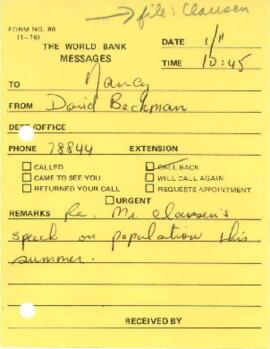 → file: Clausen
FORM NO. 89
(1-76)
THE WORLD BANK
MESSAGES
DATE 1/11
TIME 10:45
TO Nancy
FROM David Beckman
DEPT/OFFICE
PHONE 78844 EXTENSION
CALLED CALL BACK
CAME TO SEE YOU WILL CALL AGAIN
RETURNED YOUR CALL REQUESTS APPOINTMENT
URGENT
REMARKS Re. Mr. Clausen's
speech on population this
summer.
RECEIVED BY